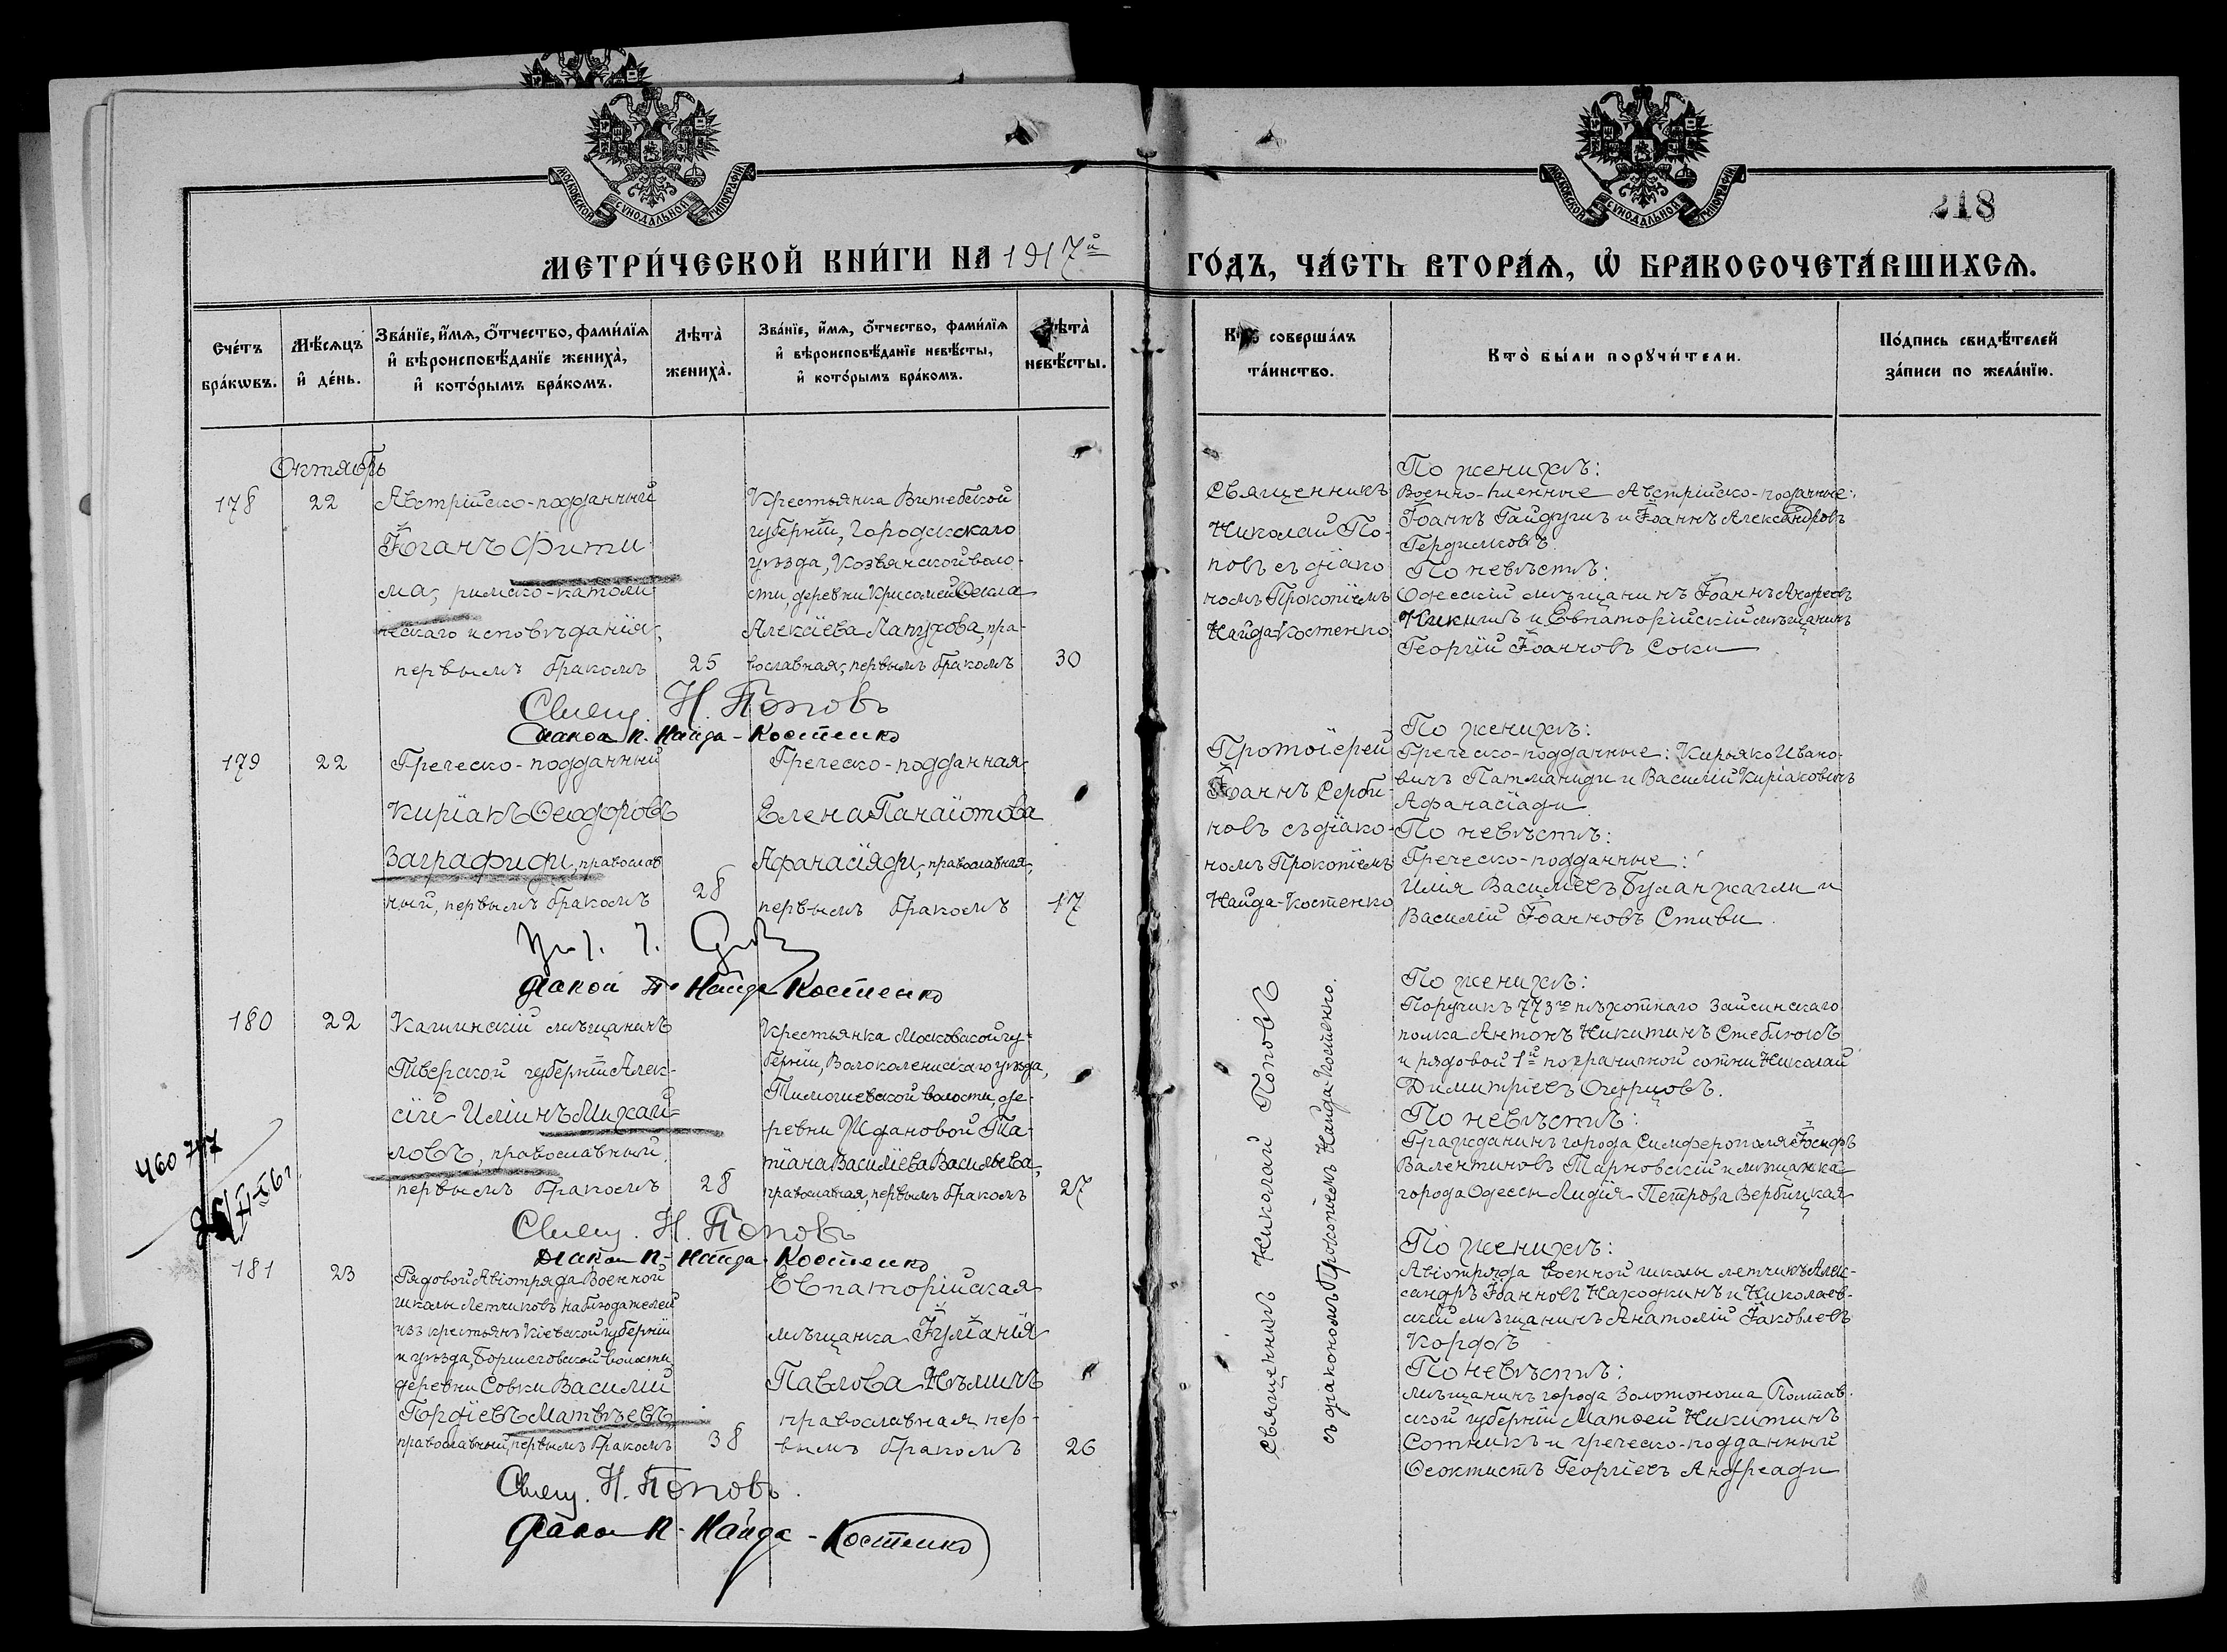 МОСКОВСКОЙ СѴНОДАЛЬНОЙ ТИПОГРАФІИ
МОСКОВСКОЙ СѴНОДАЛЬНОЙ ТИПОГРАФІИ
218
МЕТРИ́ЧЕСКОЙ КНИ́ГИ НА 1917й ГО́ДЪ, ЧА́СТЬ ВТОРА́Ѧ, Ѡ҆ БРАКОСОЧЕТА́ВШИХСѦ.
Сче́тъ бра́кωвъ.
Мѣ́сѧцъ и҆ де́нь.
Зва́нїе, и҆́мѧ, ѻ҆́тчество, фами́лїѧ и҆ вѣроисповѣ́данїе жениха̀, и҆ кото́рымъ бра́комъ.
Лѣта̀ жениха̀.
Зва́нїе, и҆́мѧ, ѻ҆́тчество, фами́лїѧ и҆ вѣроисповѣ́данїе невѣ́сты, и҆ кото́рымъ бра́комъ.
Лѣта̀ невѣ́сты.
Кто̀ соверша́лъ та́инство.
Кто̀ бы́ли порꙋчи́тели.
По́дпись свидѣ́телей за́писи по жела́нїю.
Октябрь
178
22
Австрійско-подданный
Іоганъ Фити
ма, римско-католи
ческаго исповѣданія,
первымъ бракомъ
25
Крестьянка Витебской
губерніи, Городокскаго
уѣзда, Козьянской воло-
сти, деревни
Алексіева Лапухова, пра-
вославная, первымъ бракомъ
30
Священникъ
Николай По-
повъ съ діако
номъ Прокопіемъ
Найда-Костенко
По женихѣ:
Военно-пленные Австрійско-подданные:
Іоаннъ Гайдушъ и Іоаннъ Александровъ
По невѣстѣ:
Одесскій мѣщанинъ Іоаннъ Андреевъ
и Евпаторійскій мѣщанинъ
Георгій Іоанновъ Соки
Свящ. Н. Поповъ
Діакон П. Найда-Костенко
179
22
Греческо-подданный
Киріакъ Ѳеодоровъ
Заграфиди, православ
ный, первымъ бракомъ
28
Греческо-подданная
Елена Панаіотова
Афанасіяди, православная,
первымъ бракомъ
17
Протоіерей
Іоаннъ Серби-
новъ съ діако-
номъ Прокопіемъ
Найда-Костенко
По женихѣ:
Греческо-подданные: Кирьяко Ивано-
вичъ Патманиди и Василій Киріаковичъ
Афанасіади
По невѣстѣ:
Греческо-подданные:
Илія Василіевъ Буланжагли и
Василій Іоанновъ Стиви
діакон П. Найда Костенко
180
22
Кашинскій мѣщанинъ
Тверской губерніи Алек-
сій Иліинъ Михай-
ловъ, православный.
первымъ бракомъ
28
Крестьянка Московской гу-
берніи, Волоколамскаго уѣзда,
волости, де-
ревни Ждановой Та-
тіана Василіева Васильева,
православная, первымъ бракомъ
27
Священникъ Николай Поповъ
съ діакономъ Прокопіемъ Найда-Костенко.
По женихѣ:
Поручикъ 773го пѣхотнаго Зайсинскаго
полка Антонъ Никитинъ Стеблюкъ
и рядовой 1й пограничной сотни Николай
Димитріевъ Огурцовъ.
По невѣстѣ:
Гражданинъ города Симферополя Іосифъ
Валентиновъ Тарновскій и мѣщанка
города Одессы Лидія Петрова Вербицкая
460717
Свящ. Н. Поповъ
Діакон П. Найда-Костенко
181
23
Рядовой Авіотряда Военной
школы летчиковъ наблюдателей
изъ крестьянъ Кіевской губерніи
и уѣзда, Борщеговской волости,
деревни Совки Василій
Гордіевъ Матвѣевъ,
православный, первымъ бракомъ
38
Евпаторійская
мѣщанка Іуліанія
Павлова Нѣмичъ
православная пер-
вымъ бракомъ
26
По женихѣ:
Авіотряда военной школы летчикъ Алек-
сандръ Іоанновъ Находкинъ и Николаев-
скій мѣщанинъ Анатолій Іаковлевъ
Кордѣ
По невѣстѣ:
мѣщанинъ города Золотоноша Полтав-
ской губерніи Матѳей Никитинъ
Сотникъ и греческо-подданный
Ѳеоктистъ Георгіевъ Андреади
Свящ. Н. Поповъ.
Діакон П. Найда-Костенко